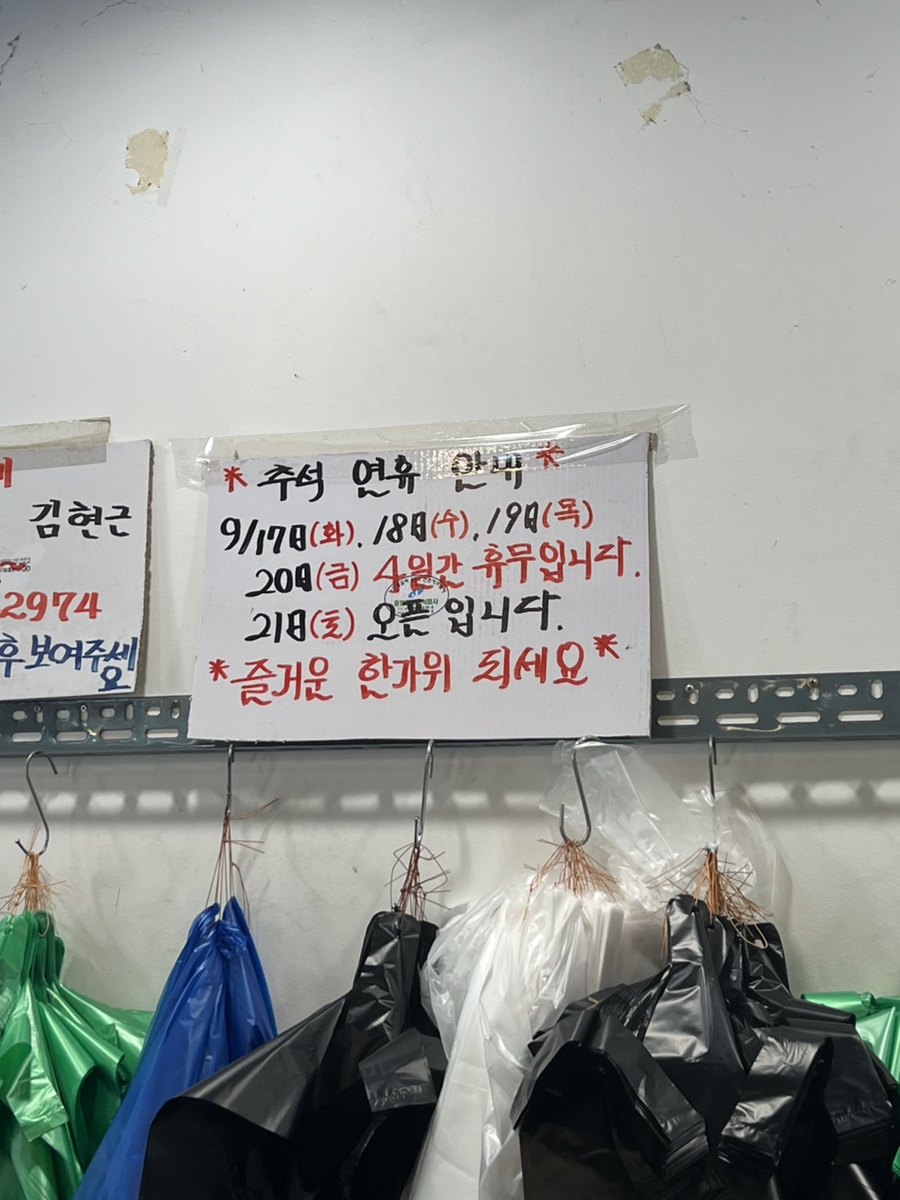 김현근
2974
후 보여주세요
* 추석 연휴 안내 *
9/17日(화), 18日(수), 19日(목)
20日(금) 4일간 휴무입니다.
21日(토) 오픈입니다.
*즐거운 한가위 되세요*